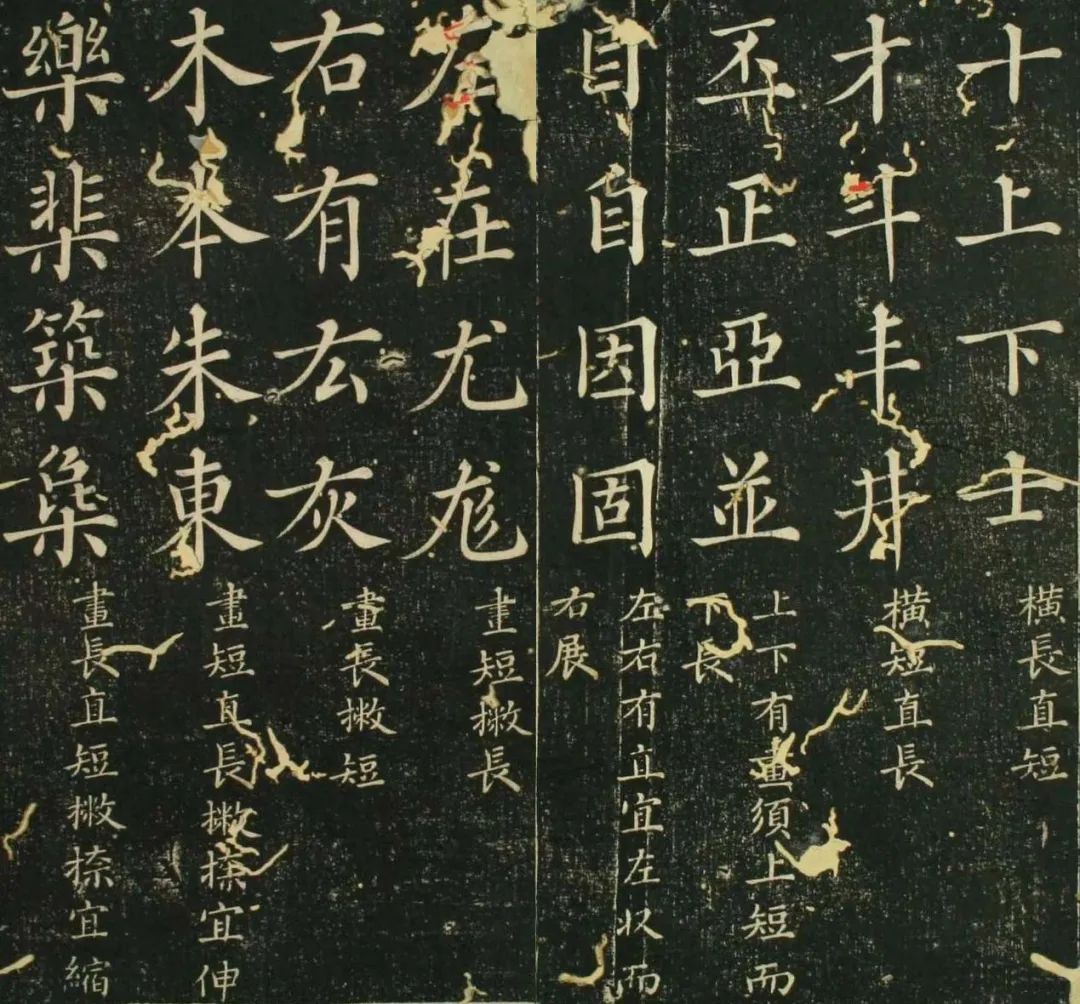 十上下士
橫長直短
才斗丰井
橫短直長
丕正亞並
上下有畫須上短而
下長
目自因固
左右有直宜左收而
右展
左在尤尨
畫短撇長
右有厷灰
畫長撇短
木本朱東
畫短直長撇捺宜伸
樂棐築
畫長直短撇捺宜縮